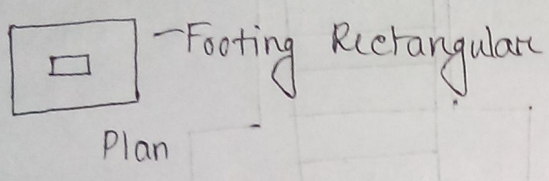 Footing Rectangular
Plan